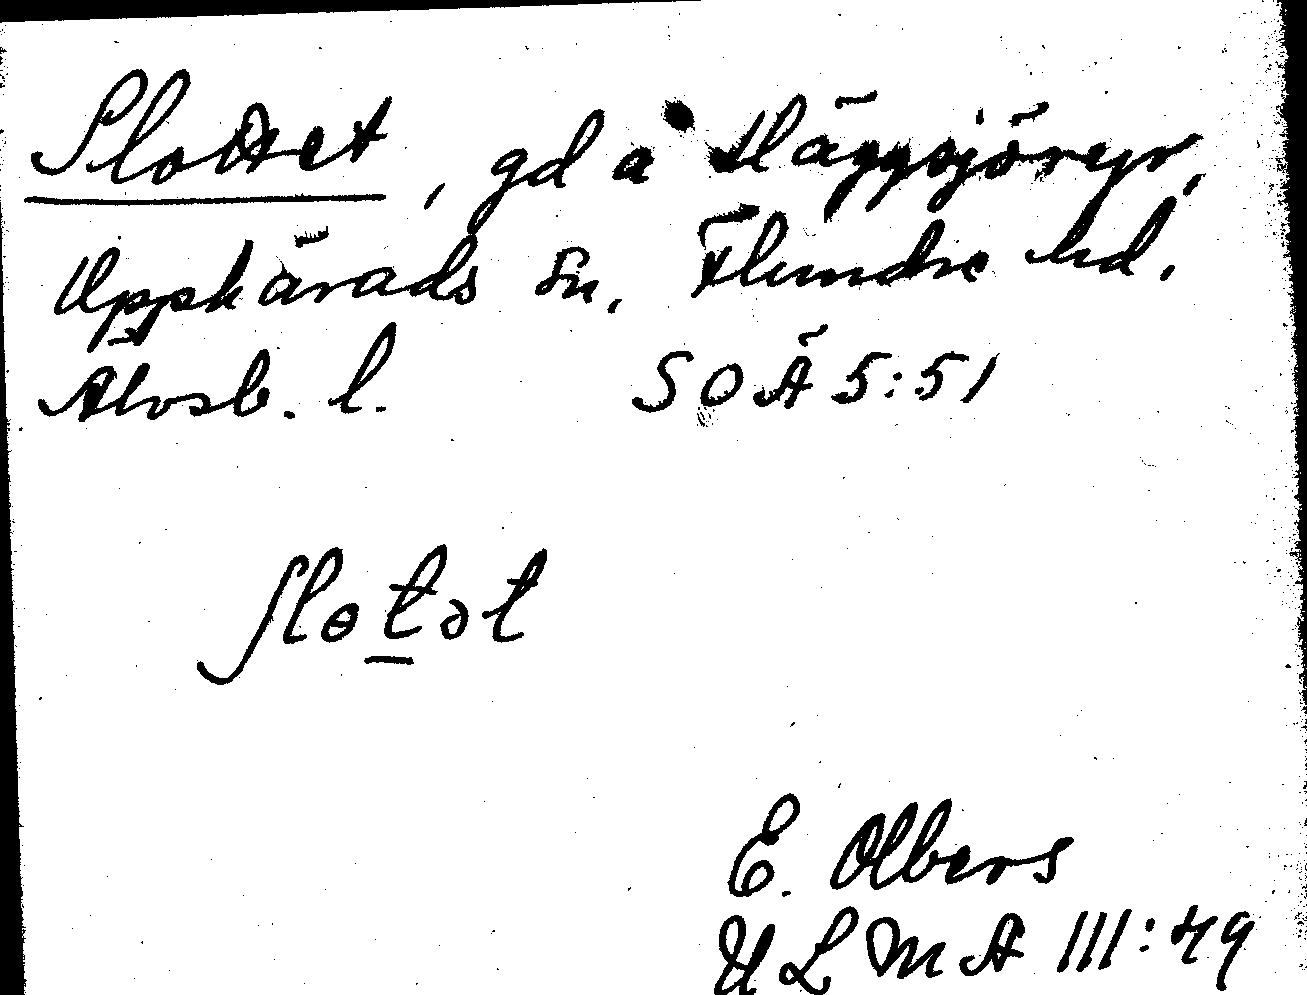 Slottet, gd a Häggsjöryr,
Upphärads sn. Flundre hd.
Älvsb. l. SOÄ 5:51
ʃlɵtət
E. Olbers
ULMA 111:49